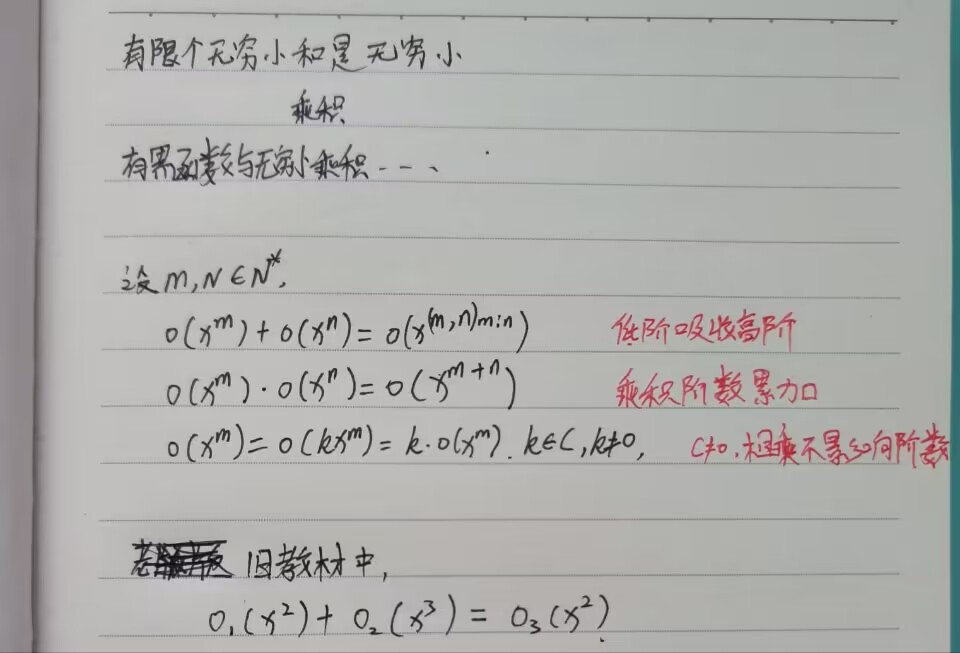 有限个无穷小和是无穷小
乘积
有界函数与无穷小乘积---、
设 m,N∈N*,
o(x^m)+o(x^n)=o(x^{(m,n)min}) 低阶吸收高阶
o(x^m)·o(x^n)=o(x^{m+n}) 乘积阶数累加
o(x^m)=o(kx^m)=k·o(x^m). k∈C,k≠0, C≠0,相乘不影响阶数
旧教材中,
o₁(x²)+o₂(x³)=o₃(x²).